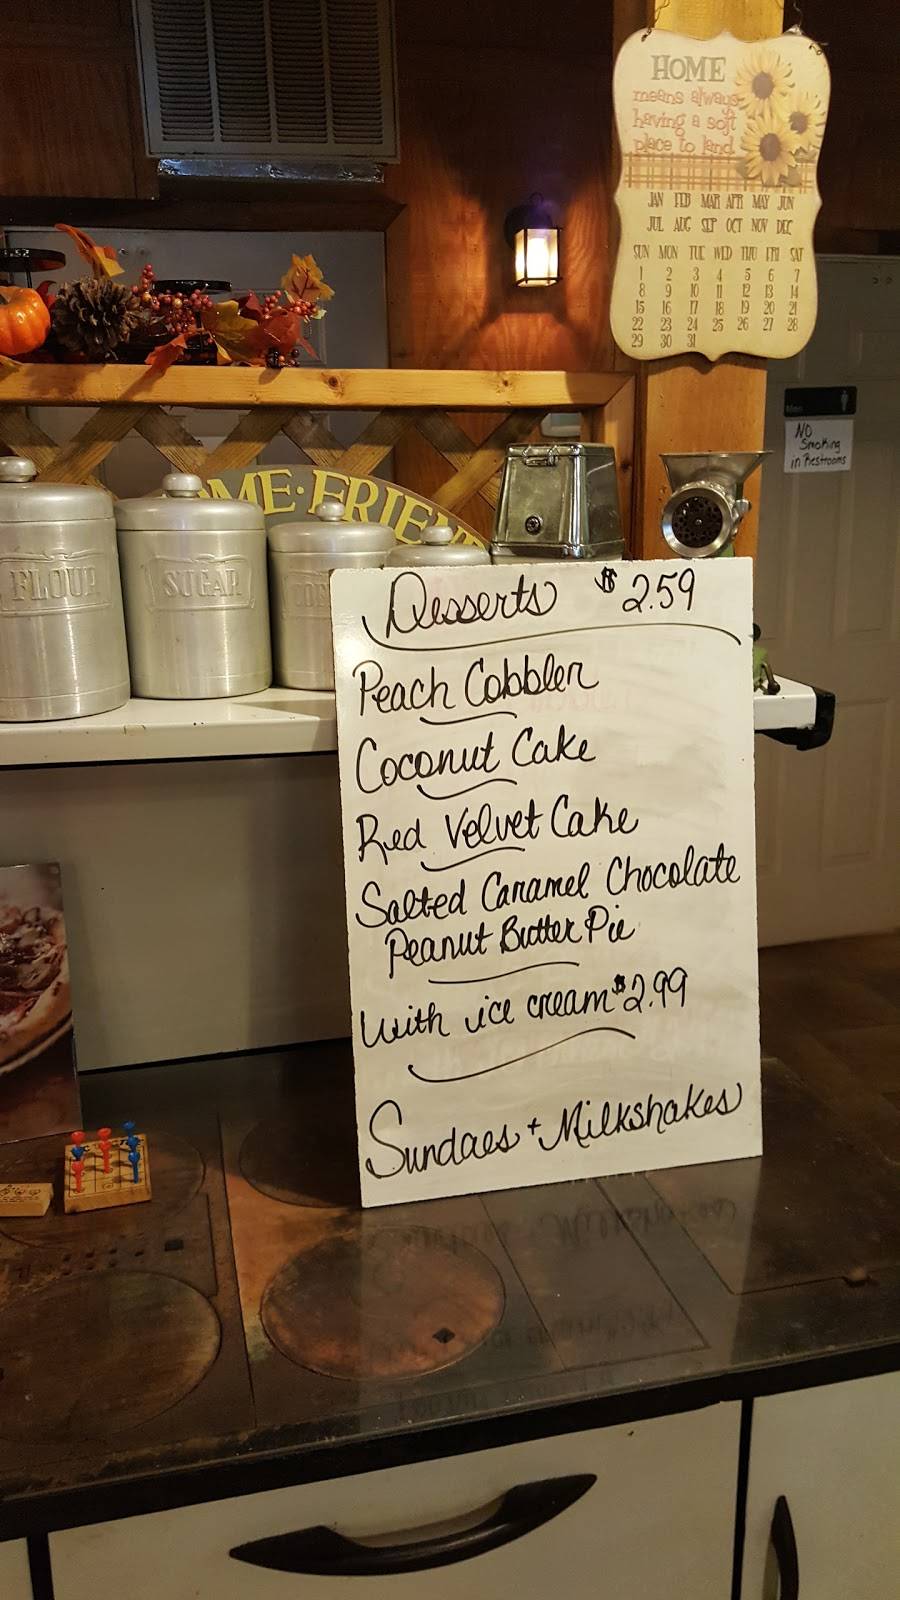 HOME
means always
having a soft
place to land.
JAN FEB MAR APR MAY JUN
JUL AUG SEP OCT NOV DEC
SUN MON TUE WED THU FRI SAT
1 2 3 4 5 6 7
8 9 10 11 12 13 14
15 16 17 18 19 20 21
22 23 24 25 26 27 28
29 30 31
Men
NO
Smoking
in Restrooms
FLOUR
SUGAR
Desserts $2.59
Peach Cobbler
Coconut Cake
Red Velvet Cake
Salted Caramel Chocolate
Peanut Butter Pie
With ice cream $2.99
Sundaes + Milkshakes